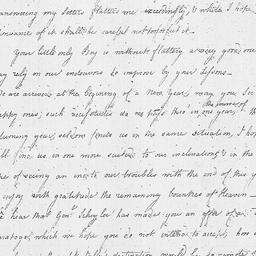 answering my letters flatters me exceedingly, & while I hope
continuance of it shall be careful not to forfeit it.
Your little only Boy is without flattery a very good one
may rely on our endeavors to improve by your lessons—
We are arrived at the beginning of a New year, may you Sir
happy ones, such vicissitudes as we pass thro' in one year, th
the course of
returning year, seldom finds us in the same situation, I hope
will find us in one more suited to our inclinations & in the
of seeing an end to our troubles with the end of this y
enjoy with gratitude the remaining bounties of Heaven—
We hear that Genl Schuyler has made you an offer of
Saratoga, which we hope you do not intend to accept, how